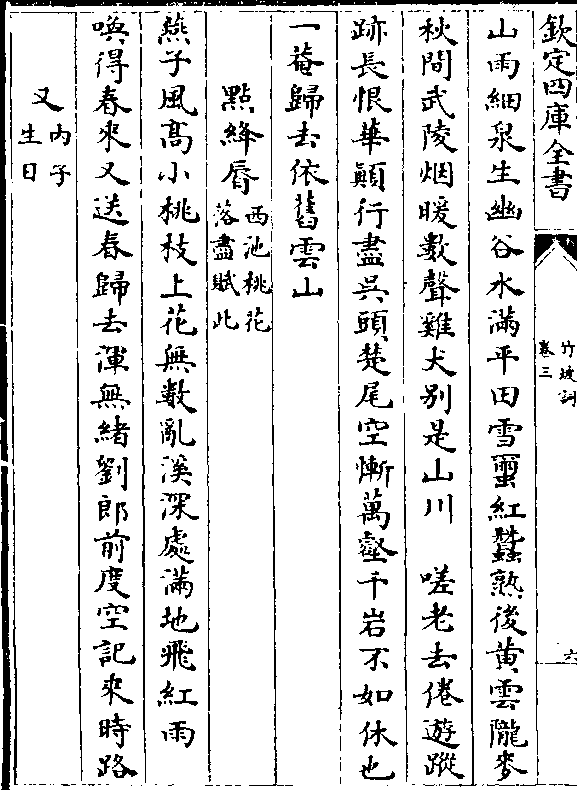 欽定四庫全書
竹坡詞
卷三
六
山雨細泉生幽谷水滿平田雪䖝紅蠶熟後黃雲隴麥
秋間武陵烟暖數聲雞犬別是山川　嗟老去倦遊蹤
跡長恨華顛行盡吳頭楚尾空慚萬壑千岩不如休也
一菴歸去依舊雲山
點絳唇 西池桃花落盡賦此
燕子風高小桃枝上花無數亂溪深處滿地飛紅雨
喚得春來又送春歸去渾無緒劉郎前度空記來時路
又 內子生日